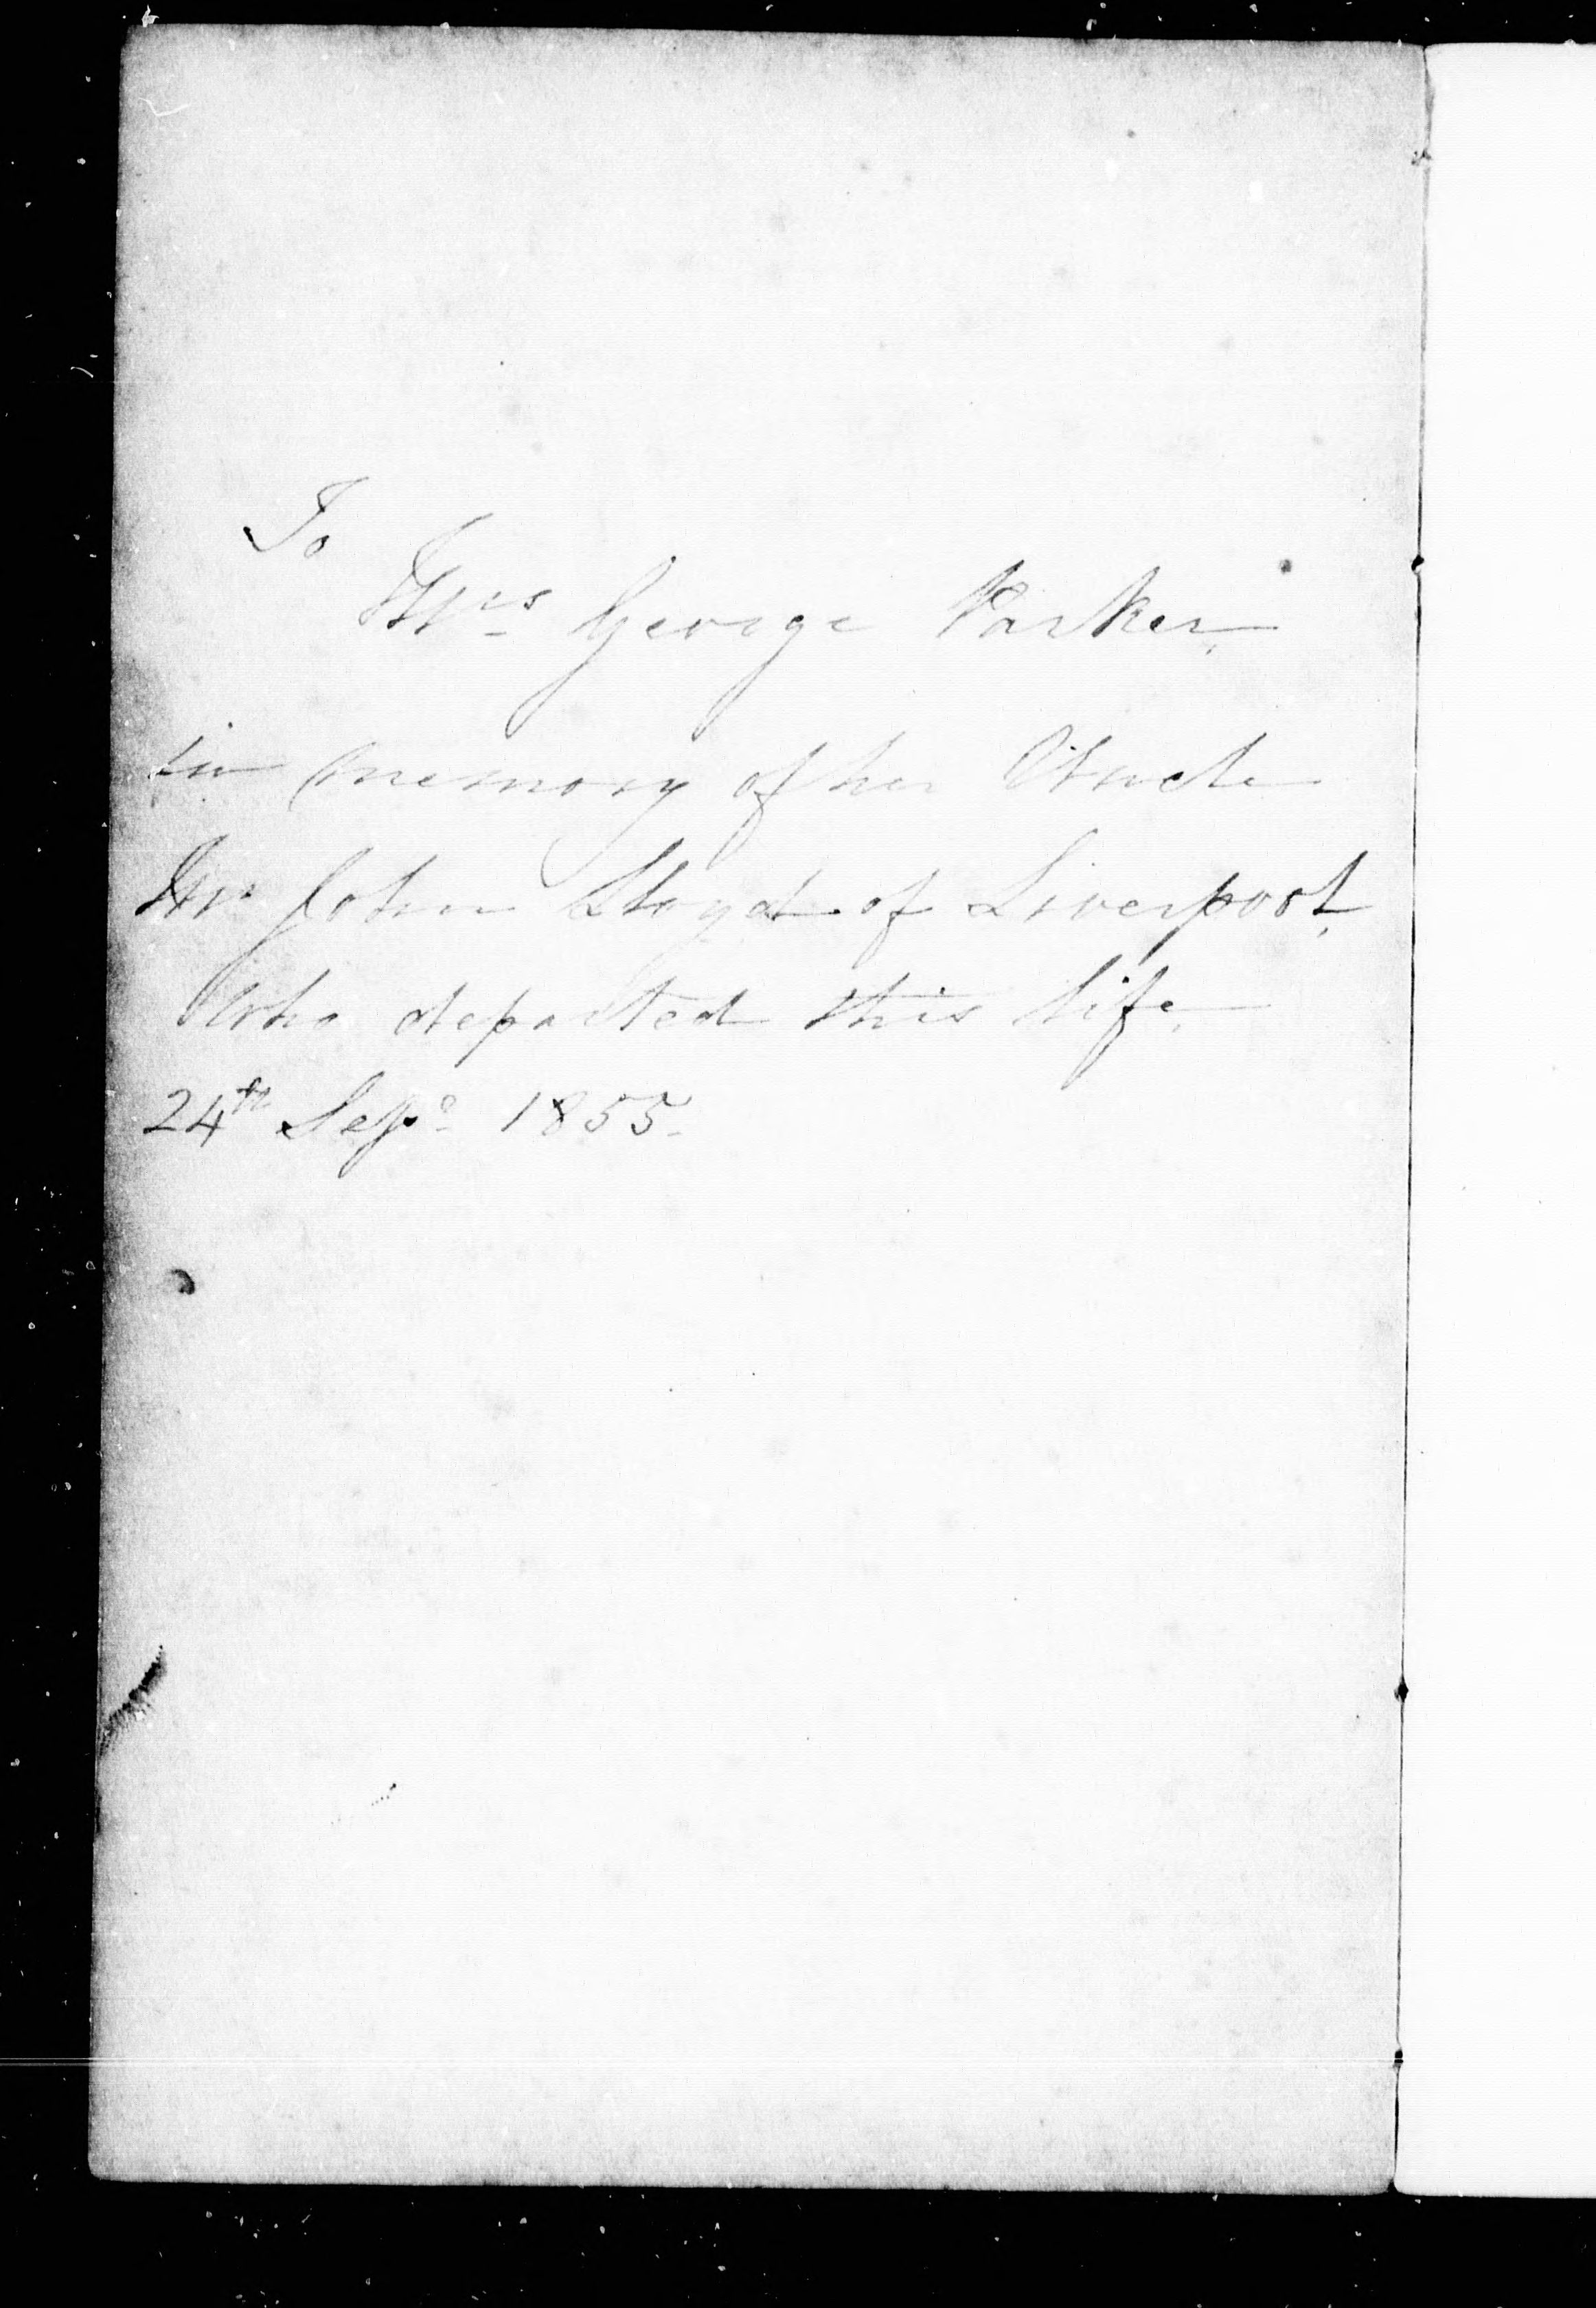 To
Mrs George Parker,
in memory of her Uncle
Mr John Lloyd of Liverpool,
Who departed this life,
24th Sepr 1855.